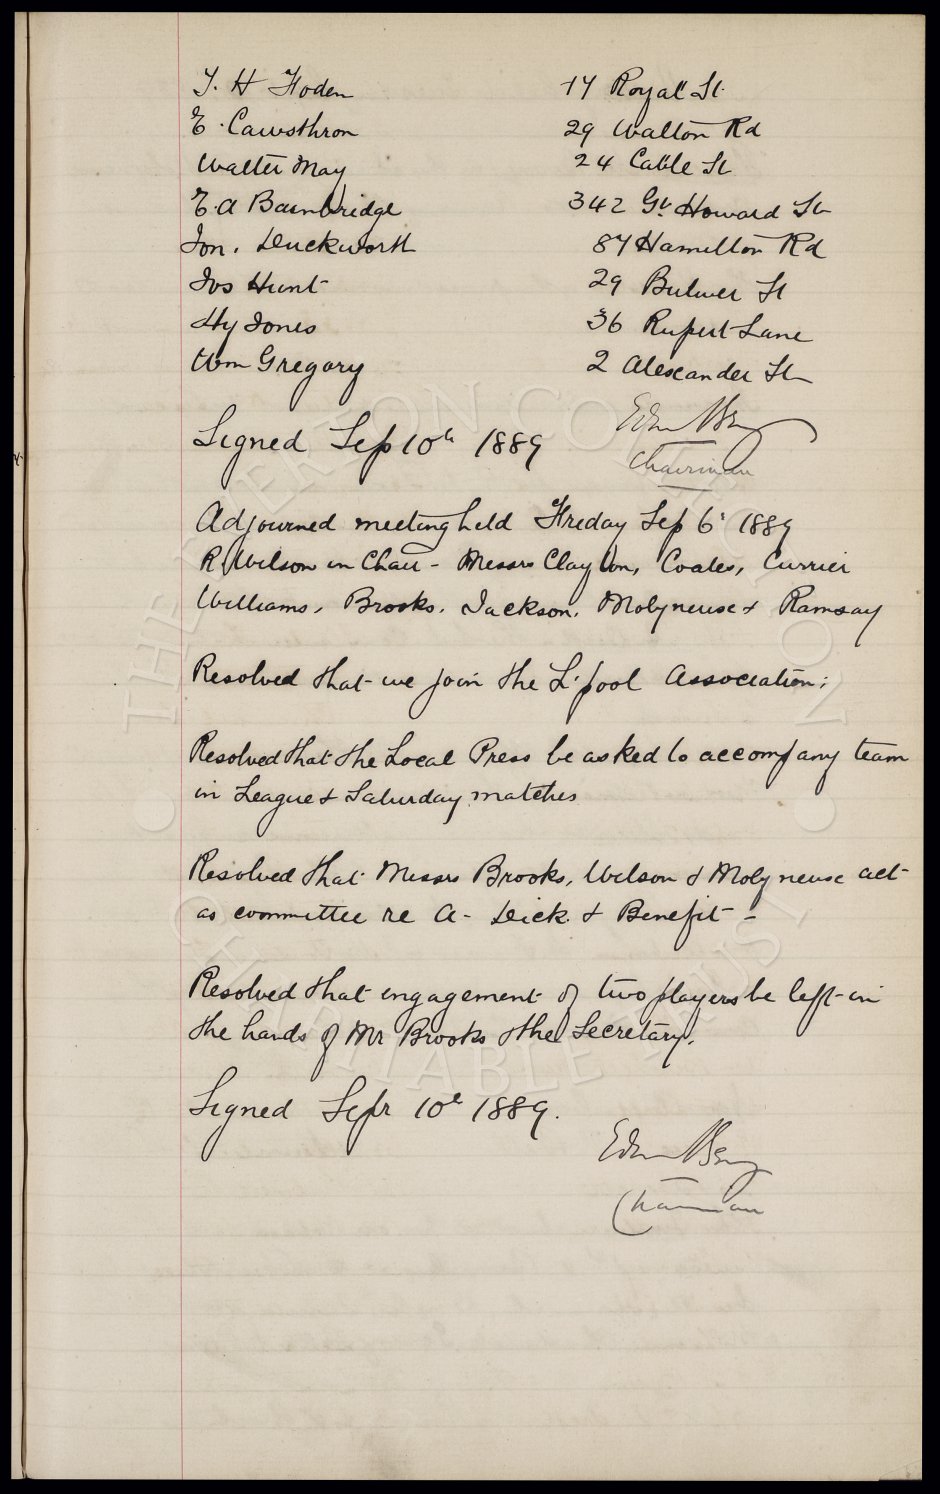 T. H Hoden 17 Royal St.
E. Cawsthron 29 Walton Rd
Walter May 24 Cable St
E. A Bainbridge 342 Gt Howard St
Jon. Duckworth 87 Hamilton Rd
Jos Hunt 29 Bulwer St
Hy Jones 36 Rupert Lane
Wm Gregory 2 Alexander St
Signed Sep 10th 1889
Chairman
Adjourned meeting held Friday Sep 6 1889
R. Wilson in Chair - Messrs Clayton, Coates, Currier
Williams, Brooks, Jackson, Molyneux & Ramsay
Resolved that we join the L'pool Association;
Resolved that the Local Press be asked to accompany team
in League & Saturday matches
Resolved that Messrs Brooks, Wilson & Molyneux act
as committee re A. Dick & Benefit -
Resolved that engagement of two players be left in
the hands of Mr Brooks & the Secretary.
Signed Sepr 10th 1889.
Chairman
THE EVERTON COLLECTION
CHARITABLE TRUST